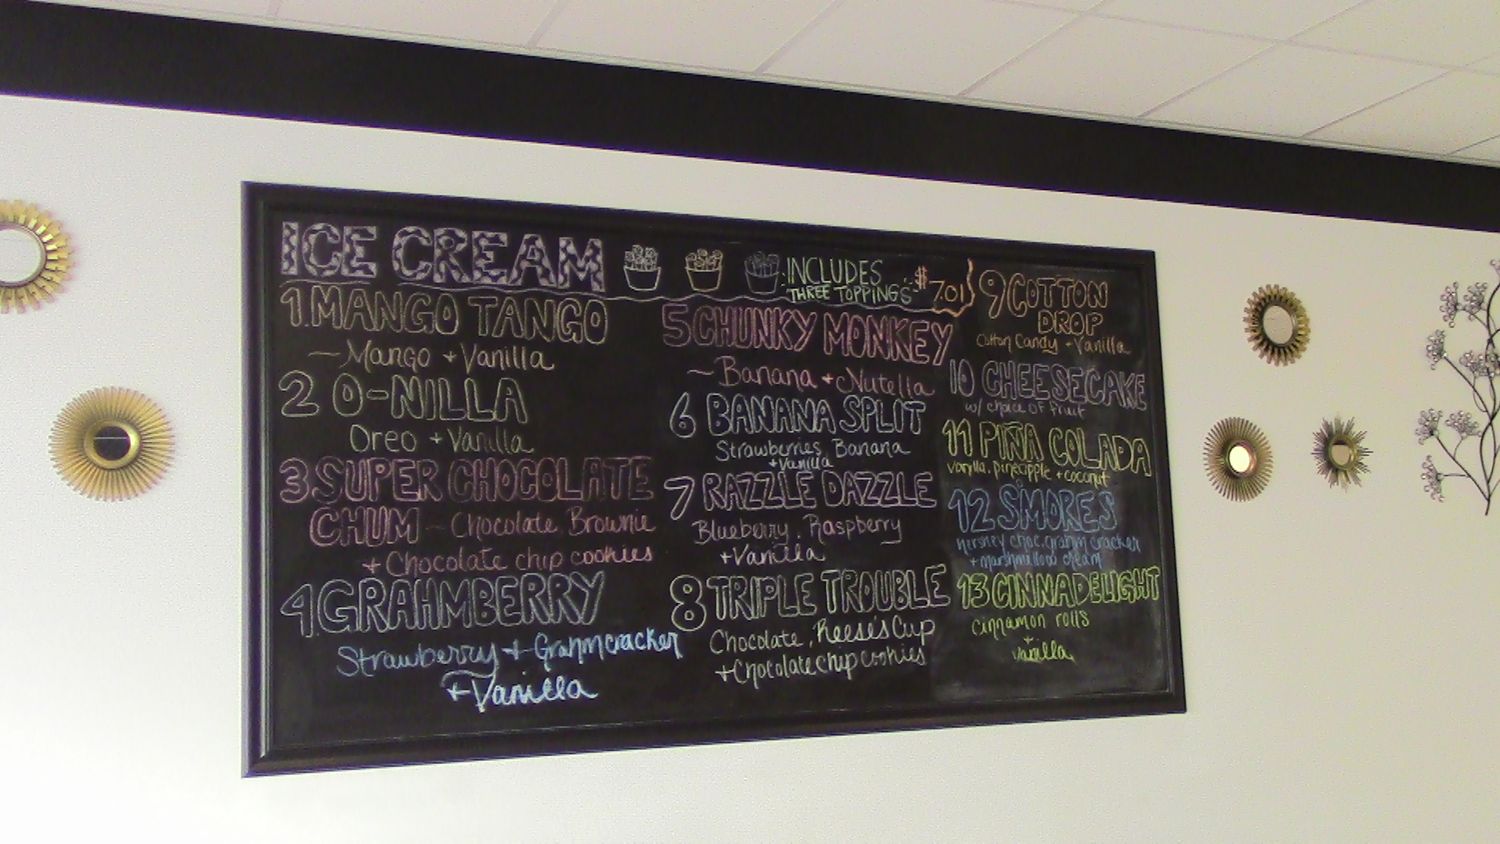 ICE CREAM
INCLUDES
THREE TOPPINGS
$7.01
1. MANGO TANGO
~Mango + Vanilla
2 O-NILLA
Oreo + Vanilla
3 SUPER CHOCOLATE
CHUM ~ Chocolate, Brownie
+ Chocolate chip cookies
4 GRAHMBERRY
Strawberry + Grahmcracker
+ Vanilla
5 CHUNKY MONKEY
~ Banana + Nutella
6 BANANA SPLIT
Strawberries, Banana
+ Vanilla
7 RAZZLE DAZZLE
Blueberry, Raspberry
+ Vanilla
8 TRIPLE TROUBLE
Chocolate, Reese's Cup
+ Chocolate chip cookies
9 COTTON
DROP
Cotton Candy + Vanilla
10 CHEESECAKE
w/ choice of fruit
11 PIÑA COLADA
vanilla, pineapple + coconut
12 SMORES
Hershey choc, grahm cracker
+ marshmallow cream
13 CINNADELIGHT
cinnamon rolls
+
vanilla